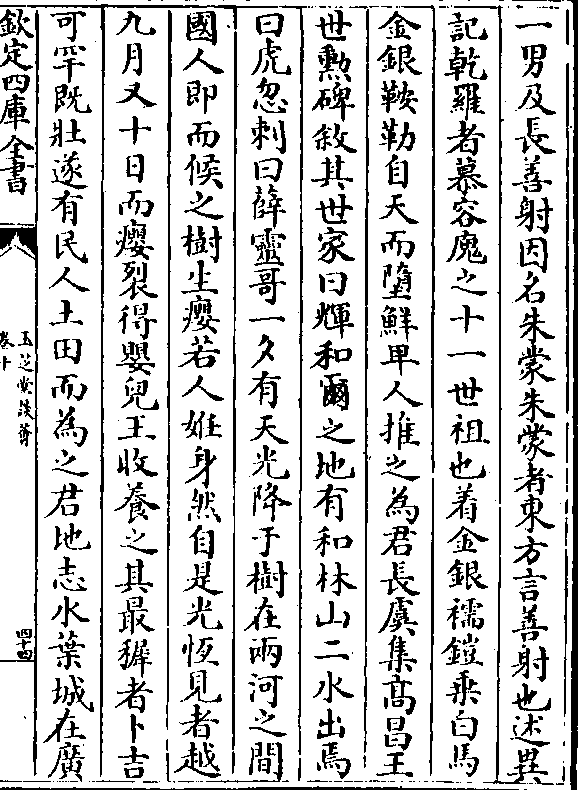 一男及長善射因名朱蒙朱蒙者東方言善射也述異
記乾羅者慕容廆之十一世祖也着金銀襦鎧乗白馬
金銀鞍勒自天而墮鮮卑人推之為君長虞集髙昌王
世勲碑敘其世家曰輝和爾之地有和林山二水出焉
曰虎忽刺曰薛靈哥一夕有天光降于樹在兩河之間
國人即而候之樹生癭若人姙身然自是光恆見者越
九月又十日而癭裂得嬰兒王收養之其最穉者卜吉
可罕既壯遂有民人土田而為之君地志水葉城在廣
欽定四庫全書
玉芝堂談薈
卷十
四十四